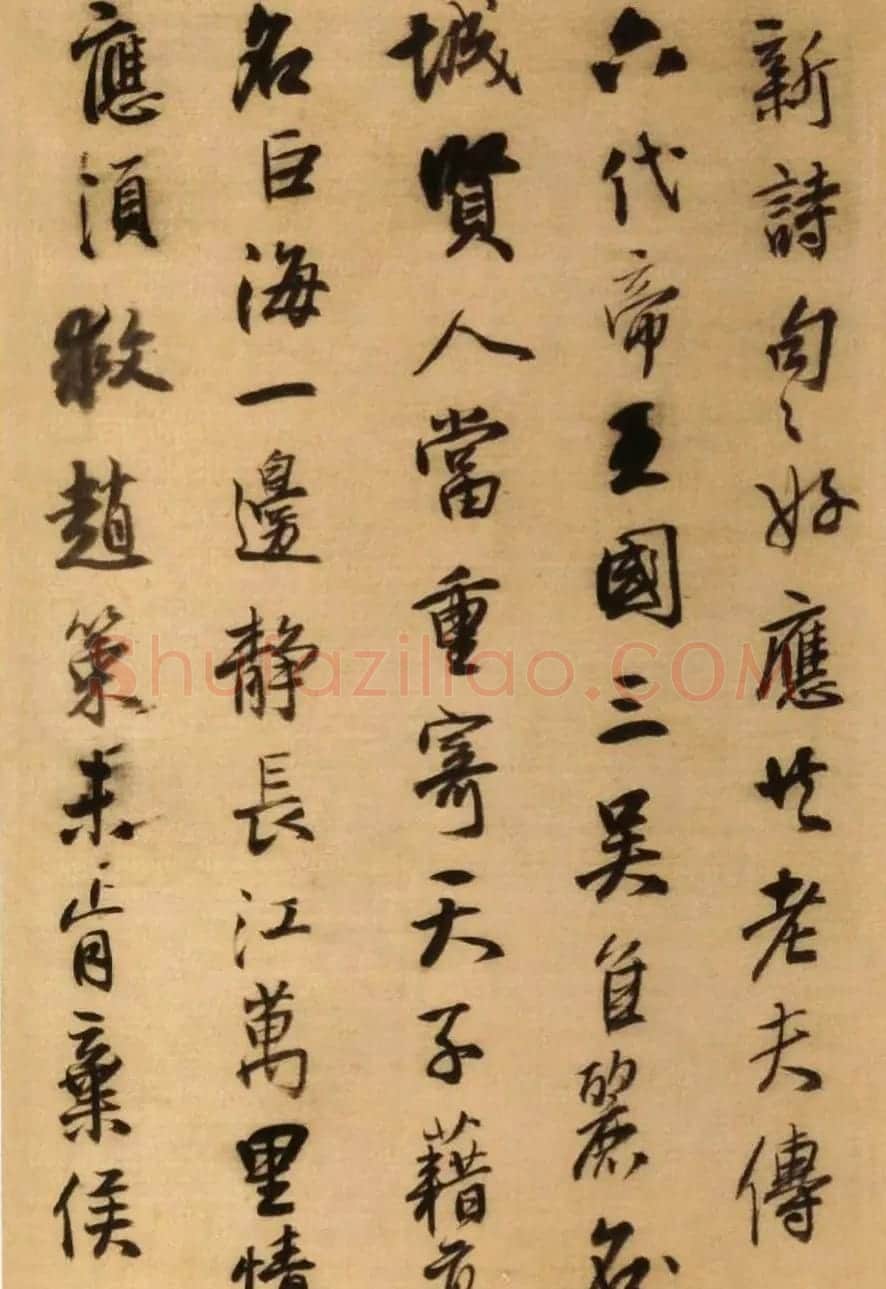 新詩句〻好應共老夫傳
六代帝王國三吳自麗名
城賢人當重寄天子藉高
名巨海一邊靜長江萬里情
應須救趙策未肯棄侯
Shufaziliao.COM